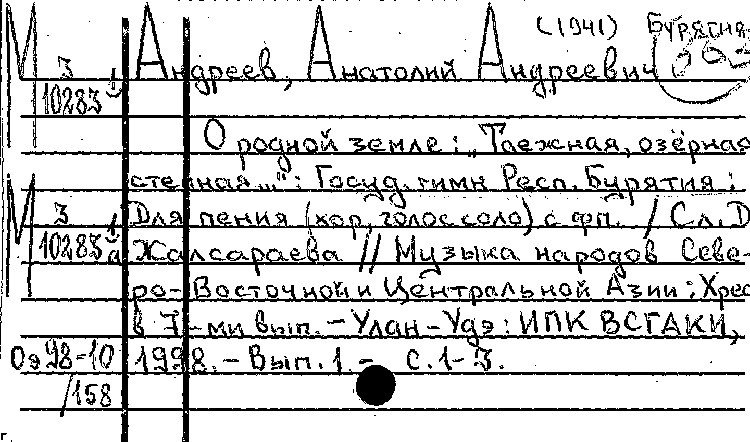 (1941) Бурятия
М З 10283 Андреев, Анатолий Андреевич
О родной земле: „Таежная, озёрная
степная...": Госуд. гимн Респ. Бурятия:
М З 10283 Для пения (хор, голос соло) с фп. / Сл. Д
Жалсараева // Музыка народов Севе-
ро-Восточной и Центральной Азии: Хрес
в 7-ми вып. - Улан-Удэ: ИПК ВСГАКИ,
Оэ98-10 1998. - Вып. 1. - С. 1-3.
/158